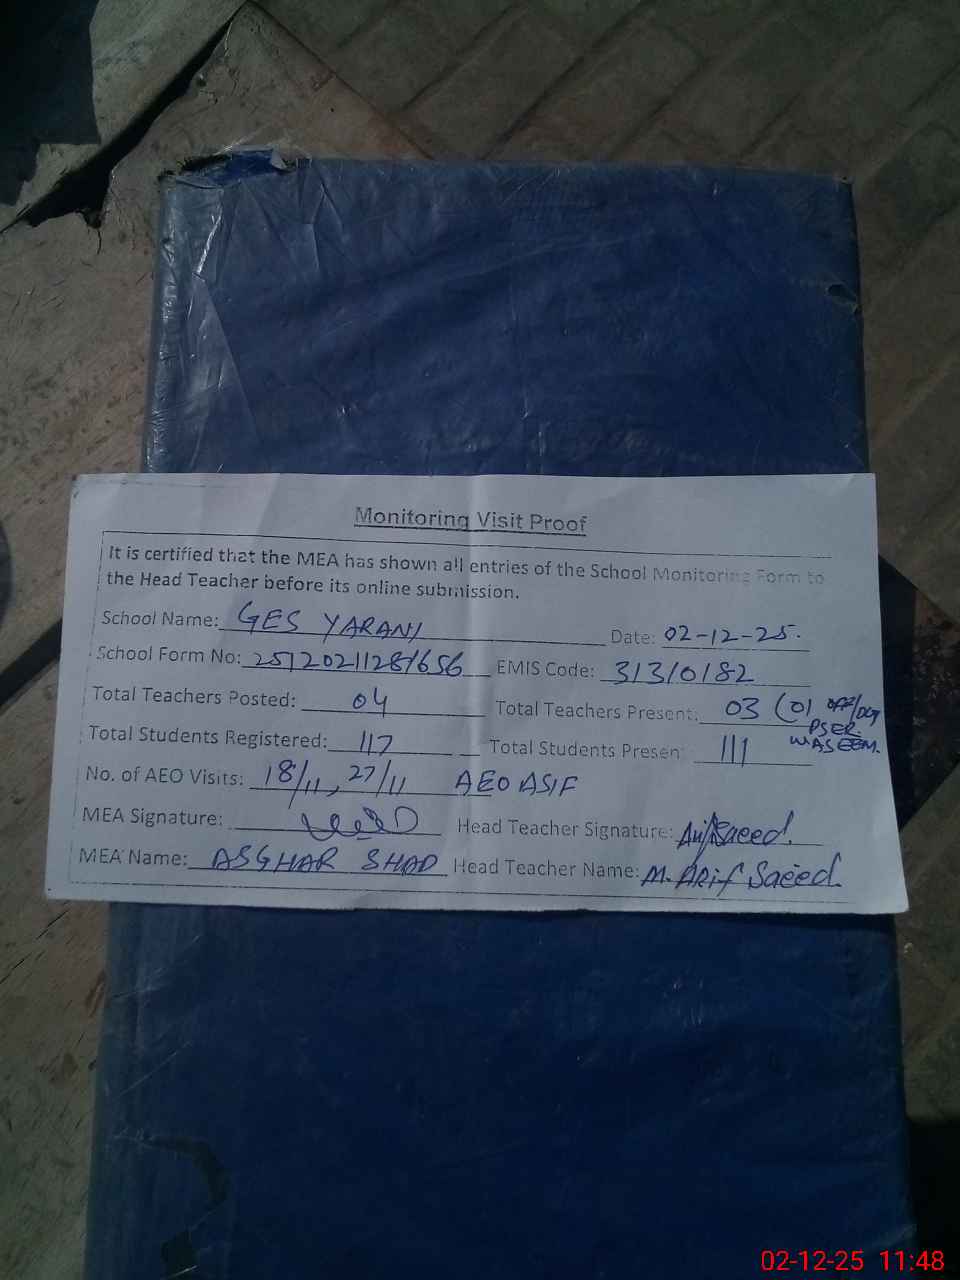 Monitoring Visit Proof
It is certified that the MEA has shown all entries of the School Monitoring Form to
the Head Teacher before its online submission.
School Name: GES YARANI Date: 02-12-25.
School Form No: EMIS Code: 31310182
Total Teachers Posted: 04 Total Teachers Present: 03 (01 OFF/DUTY
PSER
WASEEM.
Total Students Registered: 117 Total Students Present: 111
No. of AEO Visits: 18/11, 27/11 AEO ASIF
MEA Signature: Head Teacher Signature: Arif Saeed.
MEA Name: ASGHAR SHAD Head Teacher Name: M. ARif Saeed.
02-12-25 11:48